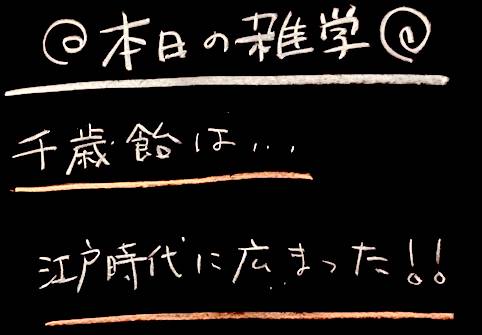 @本日の雑学@
千歳飴は...
江戸時代に広まった!!